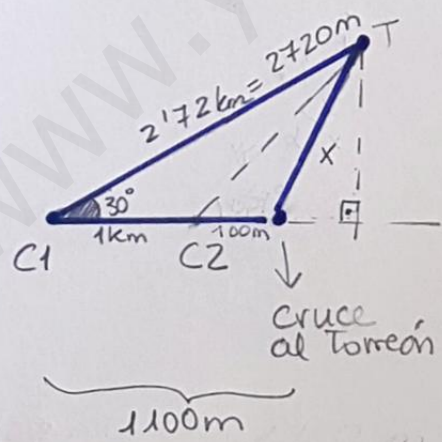 T
2'72km = 2720m
x
30°
1km
100m
C1
C2
cruce
al Torreón
1100m
www.y